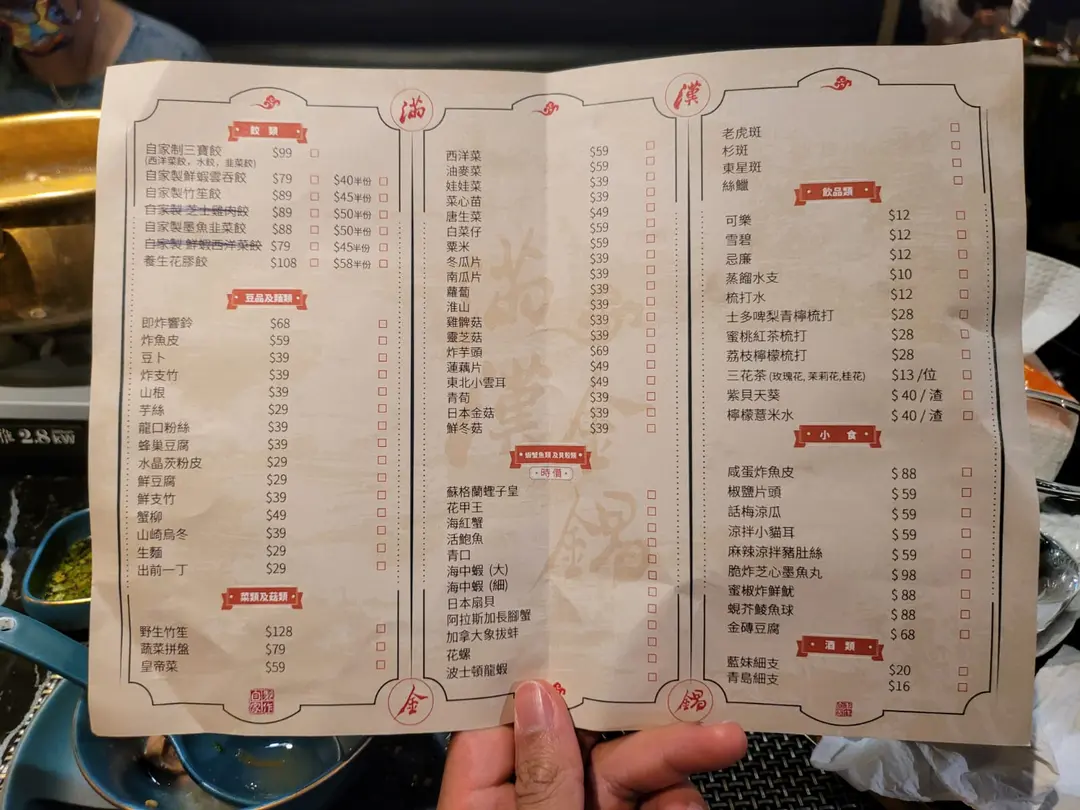 滿
漢
餃 類
自家制三寶餃 $99
(西洋菜餃，水餃，韭菜餃)
自家製鮮蝦雲吞餃 $79 $40半份
自家製竹笙餃 $89 $45半份
自家製芝士雞肉餃 $89 $50半份
自家製墨魚韭菜餃 $88 $50半份
自家製鮮蝦西洋菜餃 $79 $45半份
養生花膠餃 $108 $58半份
豆品及麵類
即炸響鈴 $68
炸魚皮 $59
豆卜 $39
炸支竹 $39
山根 $39
芋絲 $29
龍口粉絲 $39
蜂巢豆腐 $39
水晶茨粉皮 $29
鮮豆腐 $29
鮮支竹 $39
蟹柳 $49
山崎烏冬 $39
生麵 $29
出前一丁 $29
菜類及菇類
野生竹笙 $128
蔬菜拼盤 $79
皇帝菜 $59
西洋菜 $59
油麥菜 $59
娃娃菜 $39
菜心苗 $39
唐生菜 $49
白菜仔 $59
粟米 $59
冬瓜片 $39
南瓜片 $39
蘿蔔 $39
淮山 $39
雞髀菇 $39
靈芝菇 $39
炸芋頭 $69
蓮藕片 $49
東北小雲耳 $49
青荀 $39
日本金菇 $39
鮮冬菇 $39
蝦蟹魚類及貝殼類
時價
蘇格蘭蟶子皇
花甲王
海紅蟹
活鮑魚
青口
海中蝦 (大)
海中蝦 (細)
日本扇貝
阿拉斯加長腳蟹
加拿大象拔蚌
花螺
波士頓龍蝦
老虎斑
杉斑
東星斑
絲鱲
飲品類
可樂 $12
雪碧 $12
忌廉 $12
蒸餾水支 $10
梳打水 $12
士多啤梨青檸梳打 $28
蜜桃紅茶梳打 $28
荔枝檸檬梳打 $28
三花茶 (玫瑰花, 茉莉花,桂花) $13 /位
紫貝天葵 $ 40 / 渣
檸檬薏米水 $ 40 / 渣
小 食
咸蛋炸魚皮 $ 88
椒鹽片頭 $ 59
話梅涼瓜 $ 59
涼拌小貓耳 $ 59
麻辣涼拌豬肚絲 $ 59
脆炸芝心墨魚丸 $ 98
蜜椒炸鮮魷 $ 88
蜆芥鯪魚球 $ 88
金磚豆腐 $ 68
酒 類
藍妹細支 $20
青島細支 $16
金
鍋
滿
漢
金
鍋
自家製作
2.8kW